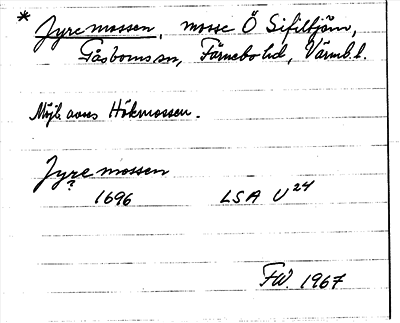 * Jyremossen, mosse Ö Sifiltjärn,
Gåsborns sn, Färnebo hd, Värml. l.
Möjl. avses Hökmossen.
Jyremossen
?
1696 LSA U24
FW. 1967